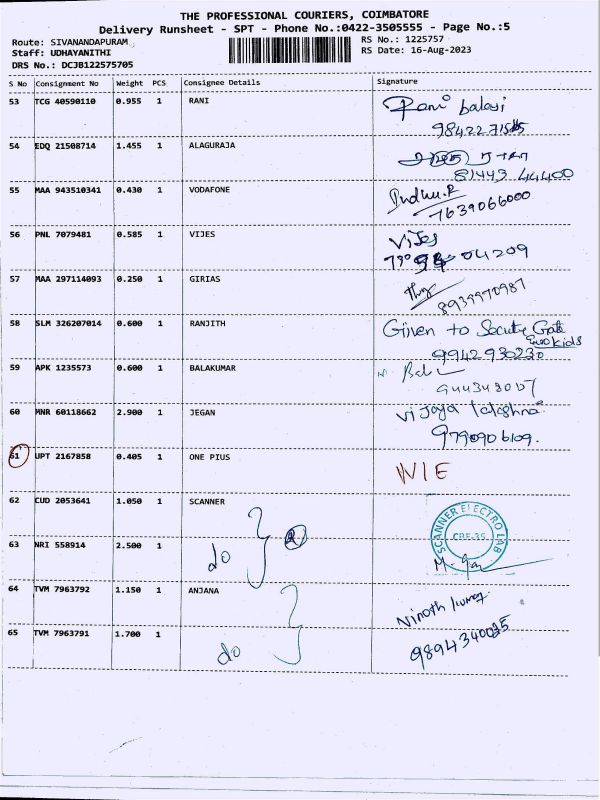 THE PROFESSIONAL COURIERS, COIMBATORE
Delivery Runsheet - SPT - Phone No.:0422-3505555 - Page No.:5
Route: SIVANANDAPURAM
RS No.: 1225757
Staff: UDHAYANITHI
RS Date: 16-Aug-2023
DRS No.: DCJB122575705
S No Consignment No Weight PCS Consignee Details Signature
53 TCG 40590110 0.955 1 RANI Rani balaji
98422 71585
54 EDQ 21508714 1.455 1 ALAGURAJA
81443 44400
55 MAA 943510341 0.430 1 VODAFONE Indhu.R
7639066000
56 PNL 7079481 0.585 1 VIJES Vijes
04209
57 MAA 297114093 0.250 1 GIRIAS
8939970987
58 SLM 326207014 0.600 1 RANJITH Given to Secuty Gate
Euro kids
9942930230
59 APK 1235573 0.600 1 BALAKUMAR
60 MNR 60118662 2.900 1 JEGAN Vijaya
9790906109.
61 UPT 2167858 0.405 1 ONE PIUS NIE
62 CUD 2053641 1.050 1 SCANNER
SCANNER ELECTRO LAB
CBE-35
63 NRI 558914 2.500 1 do 2
64 TVM 7963792 1.150 1 ANJANA
65 TVM 7963791 1.700 1 do 9894340035